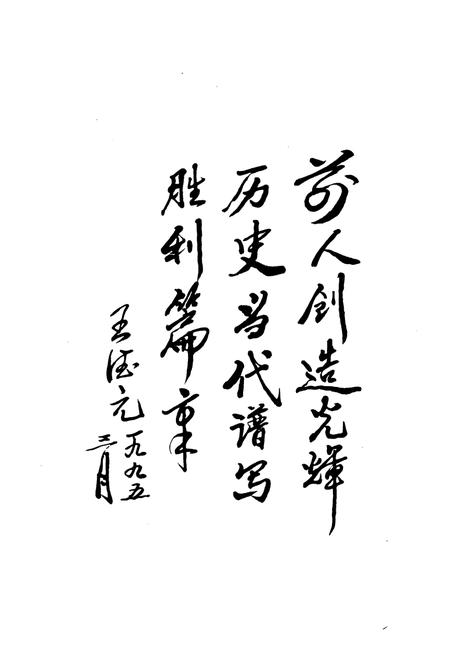 前人创造光辉
历史当代谱写
胜利篇章
王德元一九九五
三月